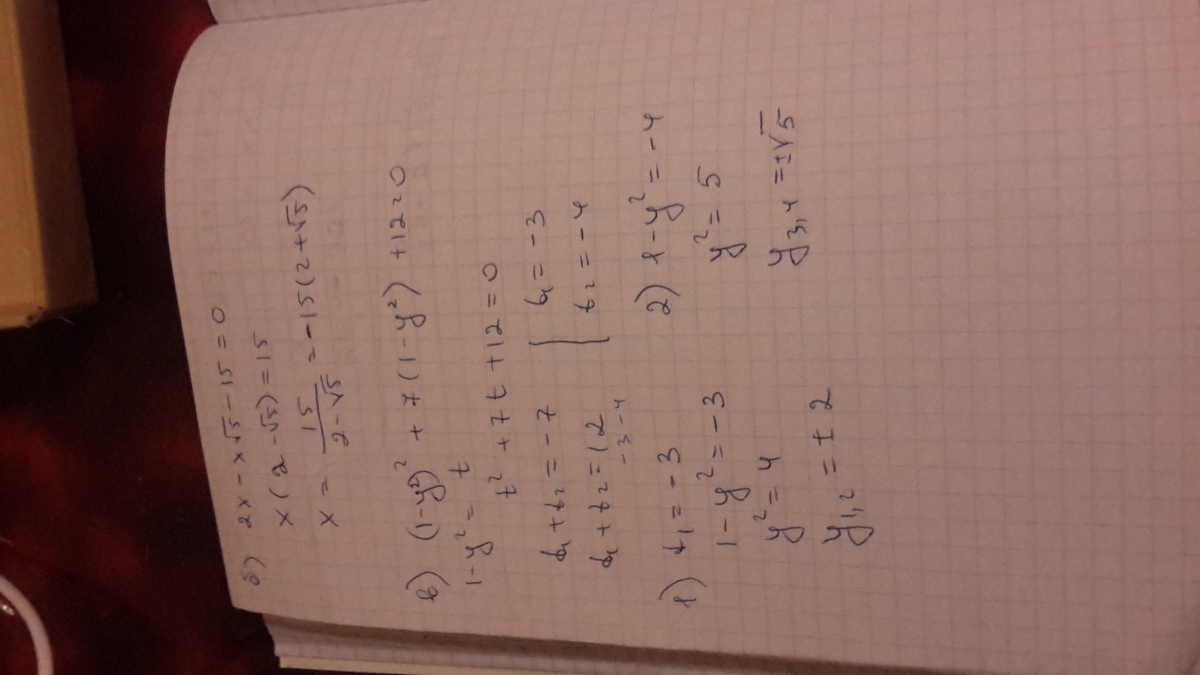 б) 2x - x√5 - 15 = 0
x(2 - √5) = 15
x = 15/(2 - √5) = -15(2 + √5)
в) (1-y²)² + 7(1-y²) + 12 = 0
1 - y² = t
t² + 7t + 12 = 0
t₁ + t₂ = -7 [ t₁ = -3
t₁ + t₂ = 12 t₂ = -4
-3 -4
1) t₁ = -3
1 - y² = -3
y² = 4
y₁,₂ = ± 2
2) 1 - y² = -4
y² = 5
y₃,₄ = ±√5